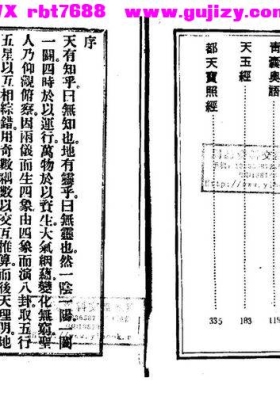 WX rbt7688 www.gujizy.com
青囊奧語……115
天玉經……183
都天寶照經……335
序
天有知乎曰無知也地有靈乎曰無靈也然一陰一陽一闔
一闢四時於以運行萬物於以資生大氣絪蘊變化無窮聖
人乃仰觀俯察因兩儀而生四象由四象而演八卦取五行
五星以互相綜錯用奇數耦數以交互推算而後天理明地